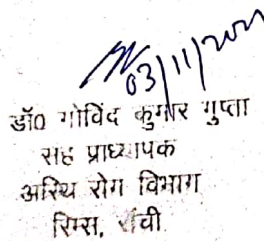 03/11/2021
डॉ0 गोविंद कुमार गुप्ता
सह प्राध्यापक
अस्थि रोग विभाग
रिम्स, राँची